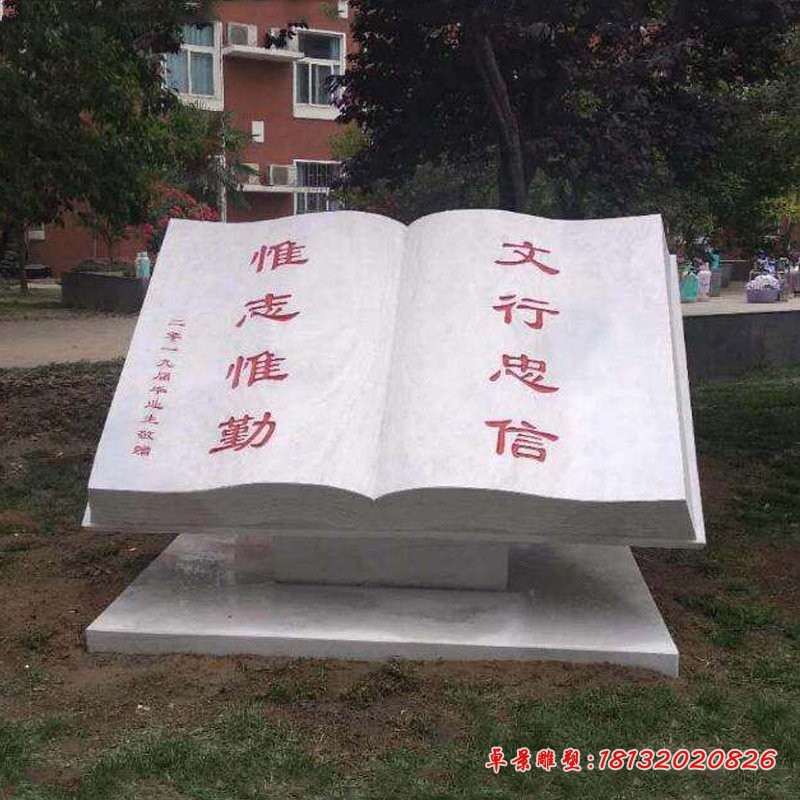 文行忠信
惟志惟勤
二零一九届毕业生敬赠
卓景雕塑:18132020826